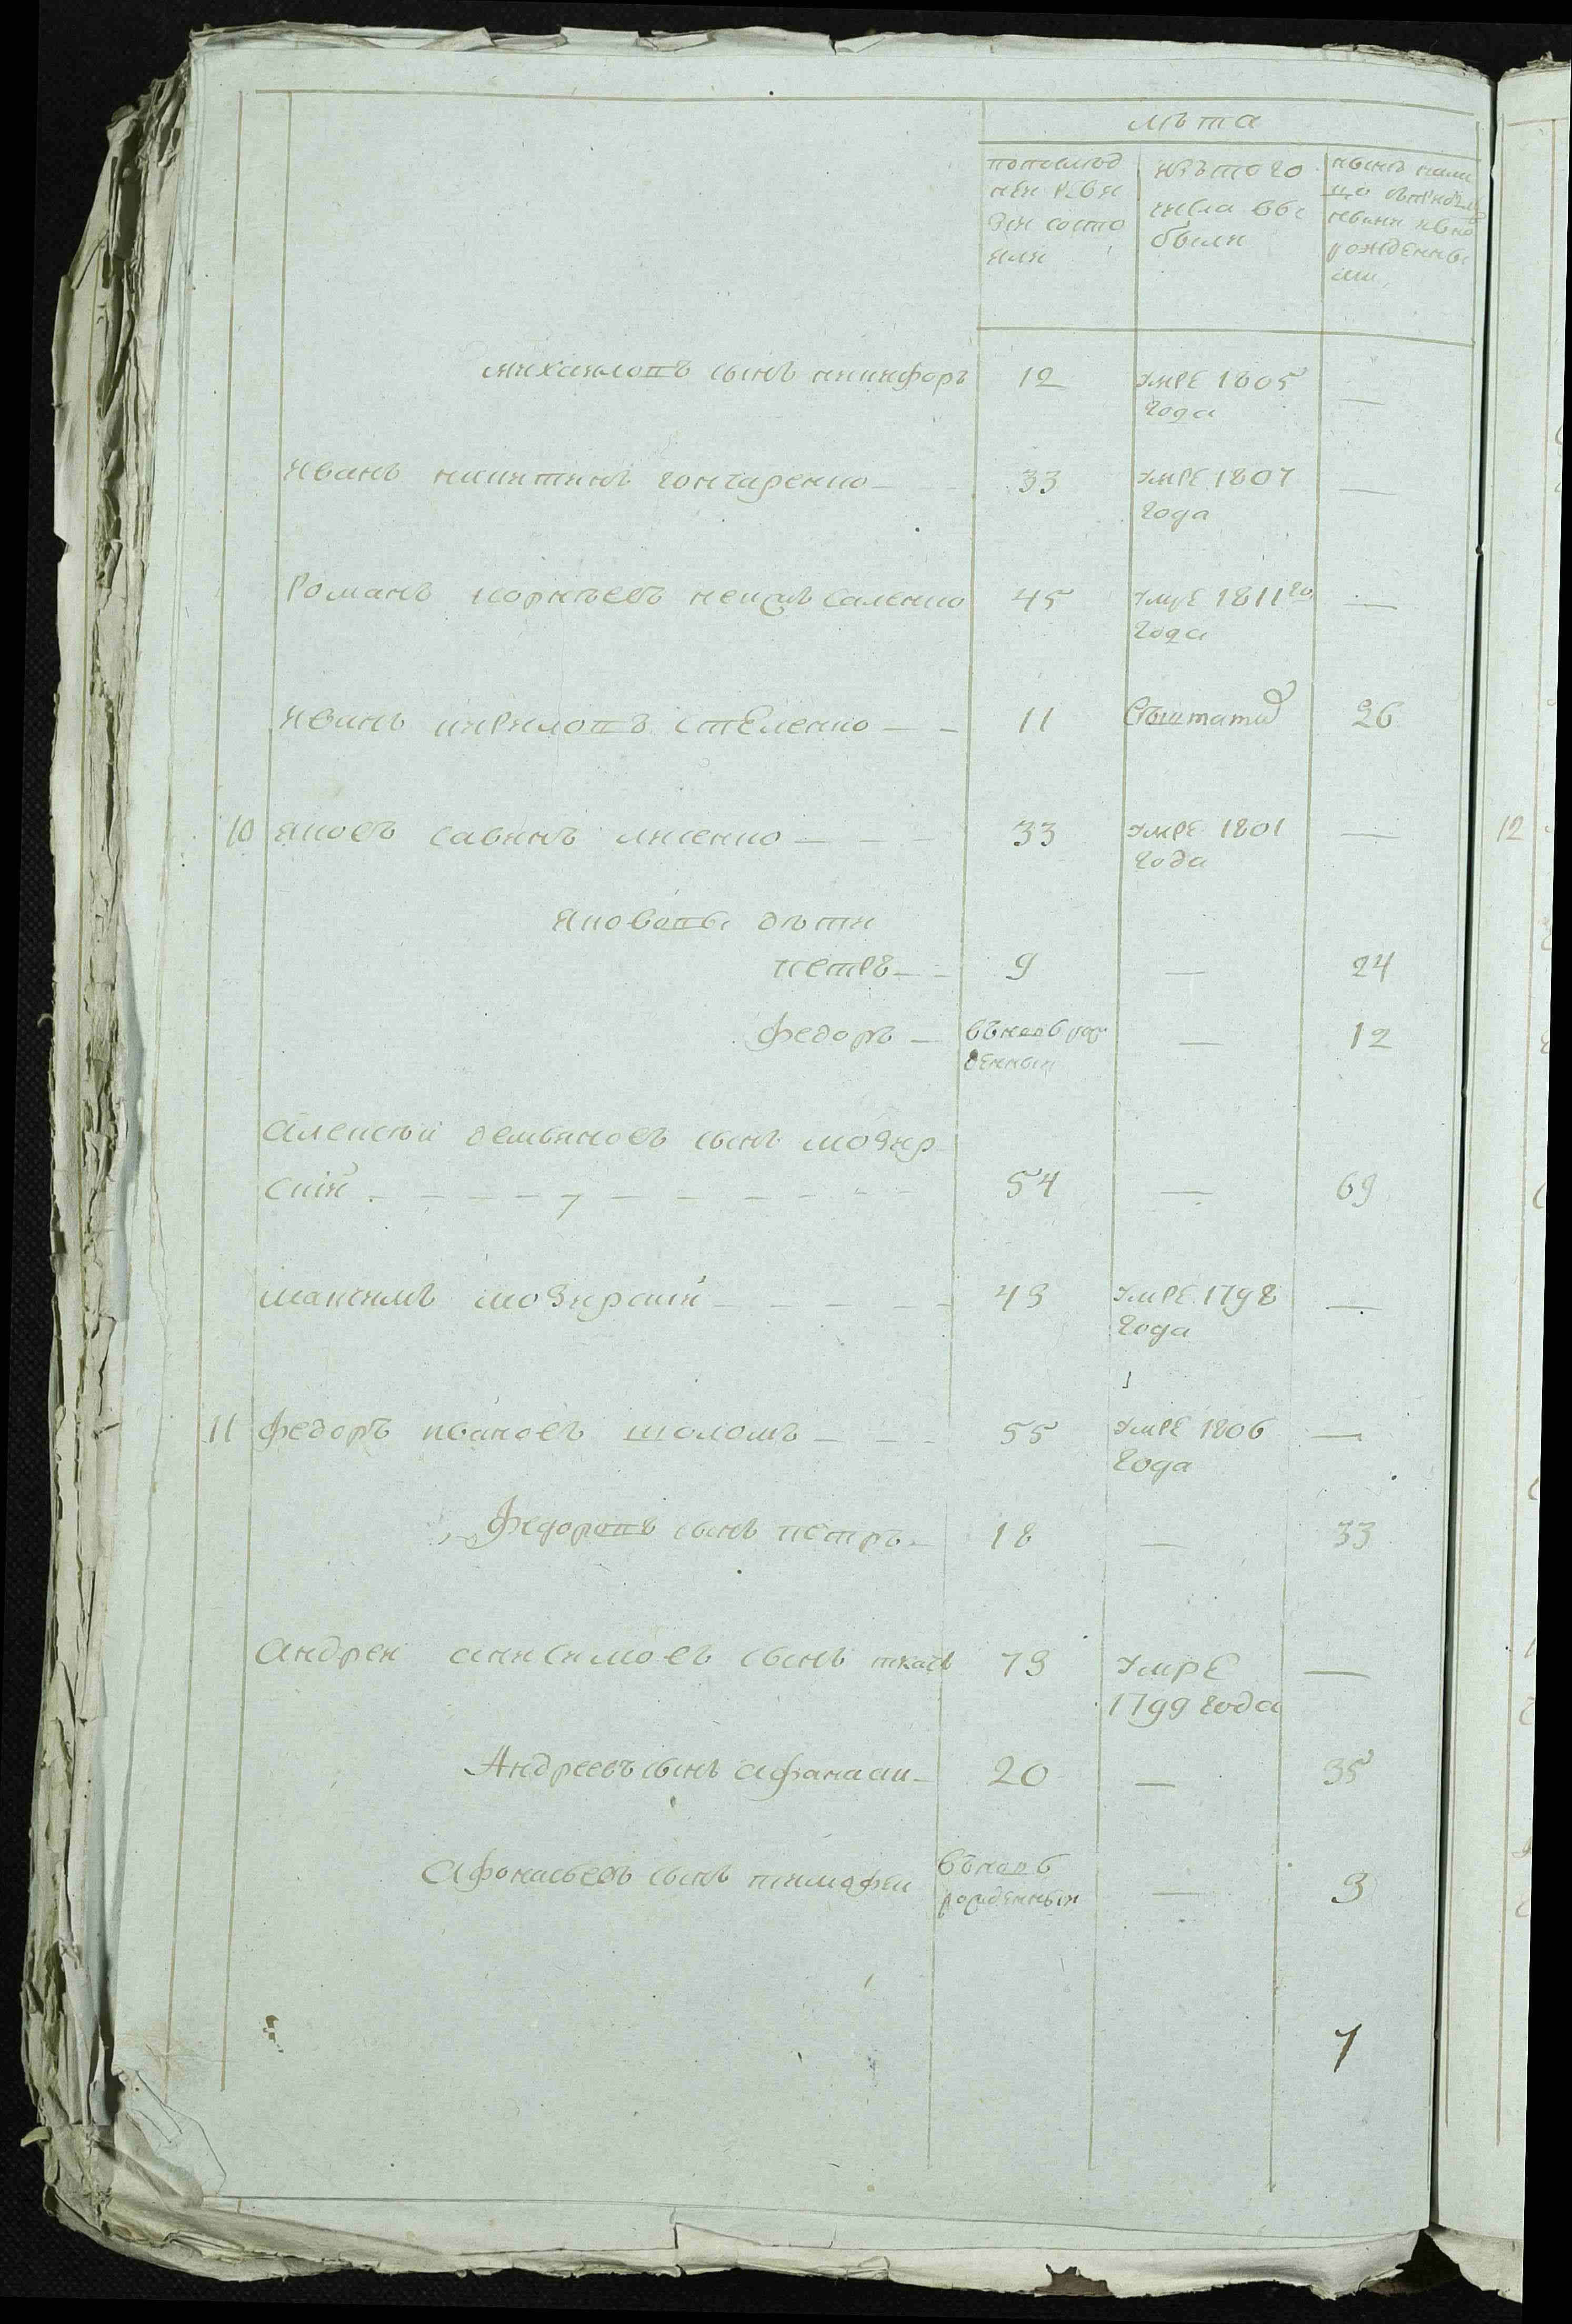 лѣта
попослѣд
ней реви
зіи состо
яли
изъ того
числа вы
были
нынѣ нали
цо съприбы
рожденны
ми
михайловъ сынъ никифоръ 12 умре 1805 —
года
иванъ никитинъ гончаренко — 33 умре 1807 —
года
романъ корнѣевъ 45 умре 1811го —
года
иванъ кириловъ стеленко — — 11 26
10 яковъ савинъ лисенко — — — 33 умре 1801 — 12
года
яковавы дѣти
петръ — — 9 — 24
федоръ — въновь рож — 12
денный
алексѣй демьяновъ сынъ мозир
скій — — — — — — — 54 — 69
максимъ мозирскій — — — — — 49 умре 1798 —
года
11 федоръ ивановъ шоломъ — — — 55 умре 1806 —
года
федоровъ сынъ петръ — 18 — 33
андрей анисимовъ сынъ ткачъ 79 умре —
1799 года
Андреевъ сынъ афанаси — 20 — 35
Афонасьевъ сынъ тимофеи вьновь — 3
рожденныи
7